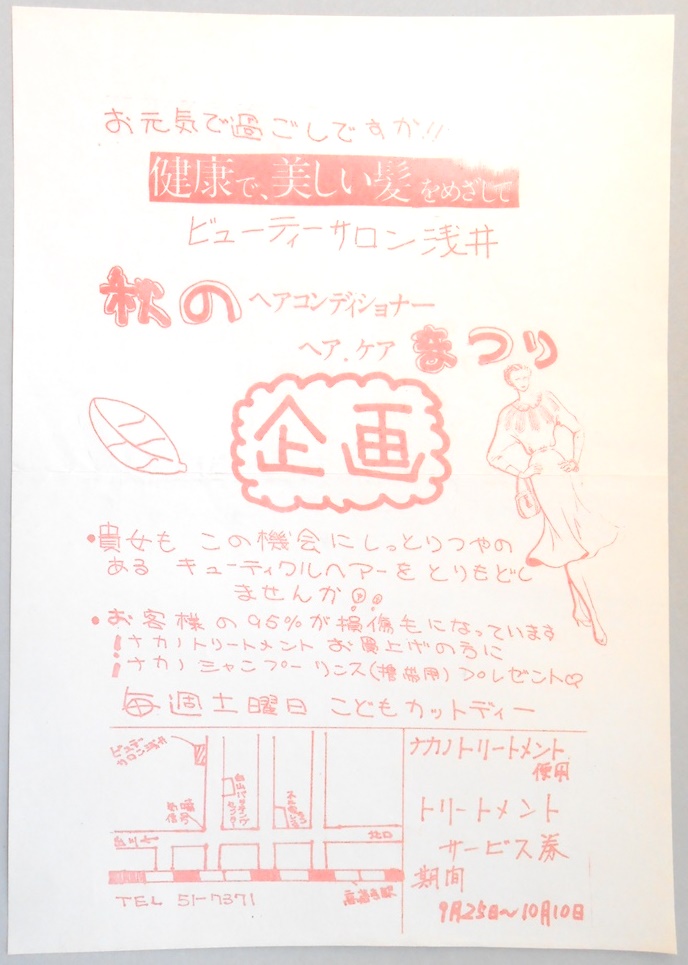 お元気で過ごしですか!!
健康で、美しい髪をめざして
ビューティーサロン浅井
秋の ヘアコンディショナー
ヘア.ケア まつり
企画
•貴女も この機会にしっとりつやの
ある キューティクルヘアーをとりもどし
ませんか
•お客様の95%が損傷毛になっています
ナカノトリートメント お買上げの方に
ナカノ シャンプー リンス(携帯用)プレゼント♡
毎週土曜日 こどもカットディー
ビューティーサロン浅井
信号
北口
TEL 51-7371
ナカノトリートメント
使用
トリートメント
サービス券
期間
9月25日〜10月10日